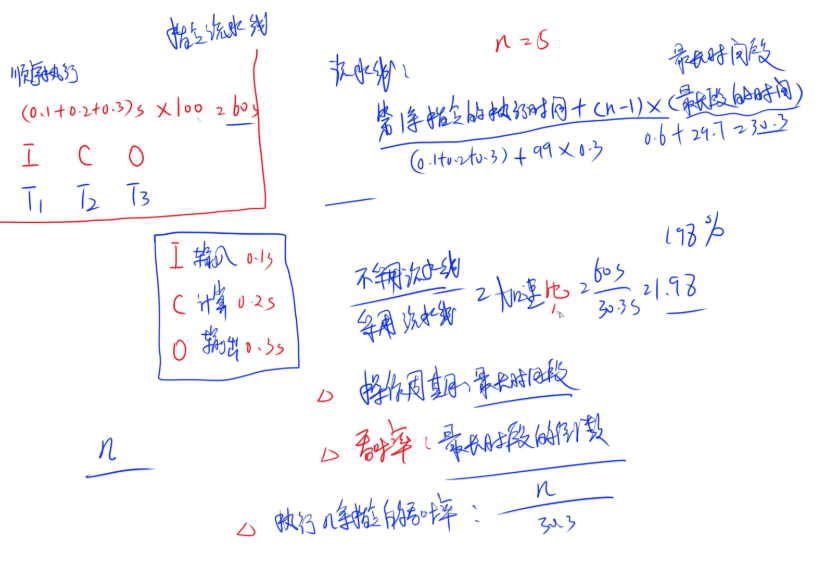 指令流水线
顺序执行
(0.1+0.2+0.3)s ×100 = 60s
I C O
T1 T2 T3
n = 5
流水线:
最长时间段
第1条指令的执行时间+(n-1)×(最长段的时间)
(0.1+0.2+0.3)+99×0.3
0.6+29.7=30.3
I 输入 0.1s
C 计算 0.2s
O 输出 0.3s
198%
不采用流水线
采用流水线
=加速比=60s/30.3s=1.98
△ 操作周期:最长时间段
△ 吞吐率:最长时段的倒数
n
△ 执行n条指令的吞吐率:n/30.3